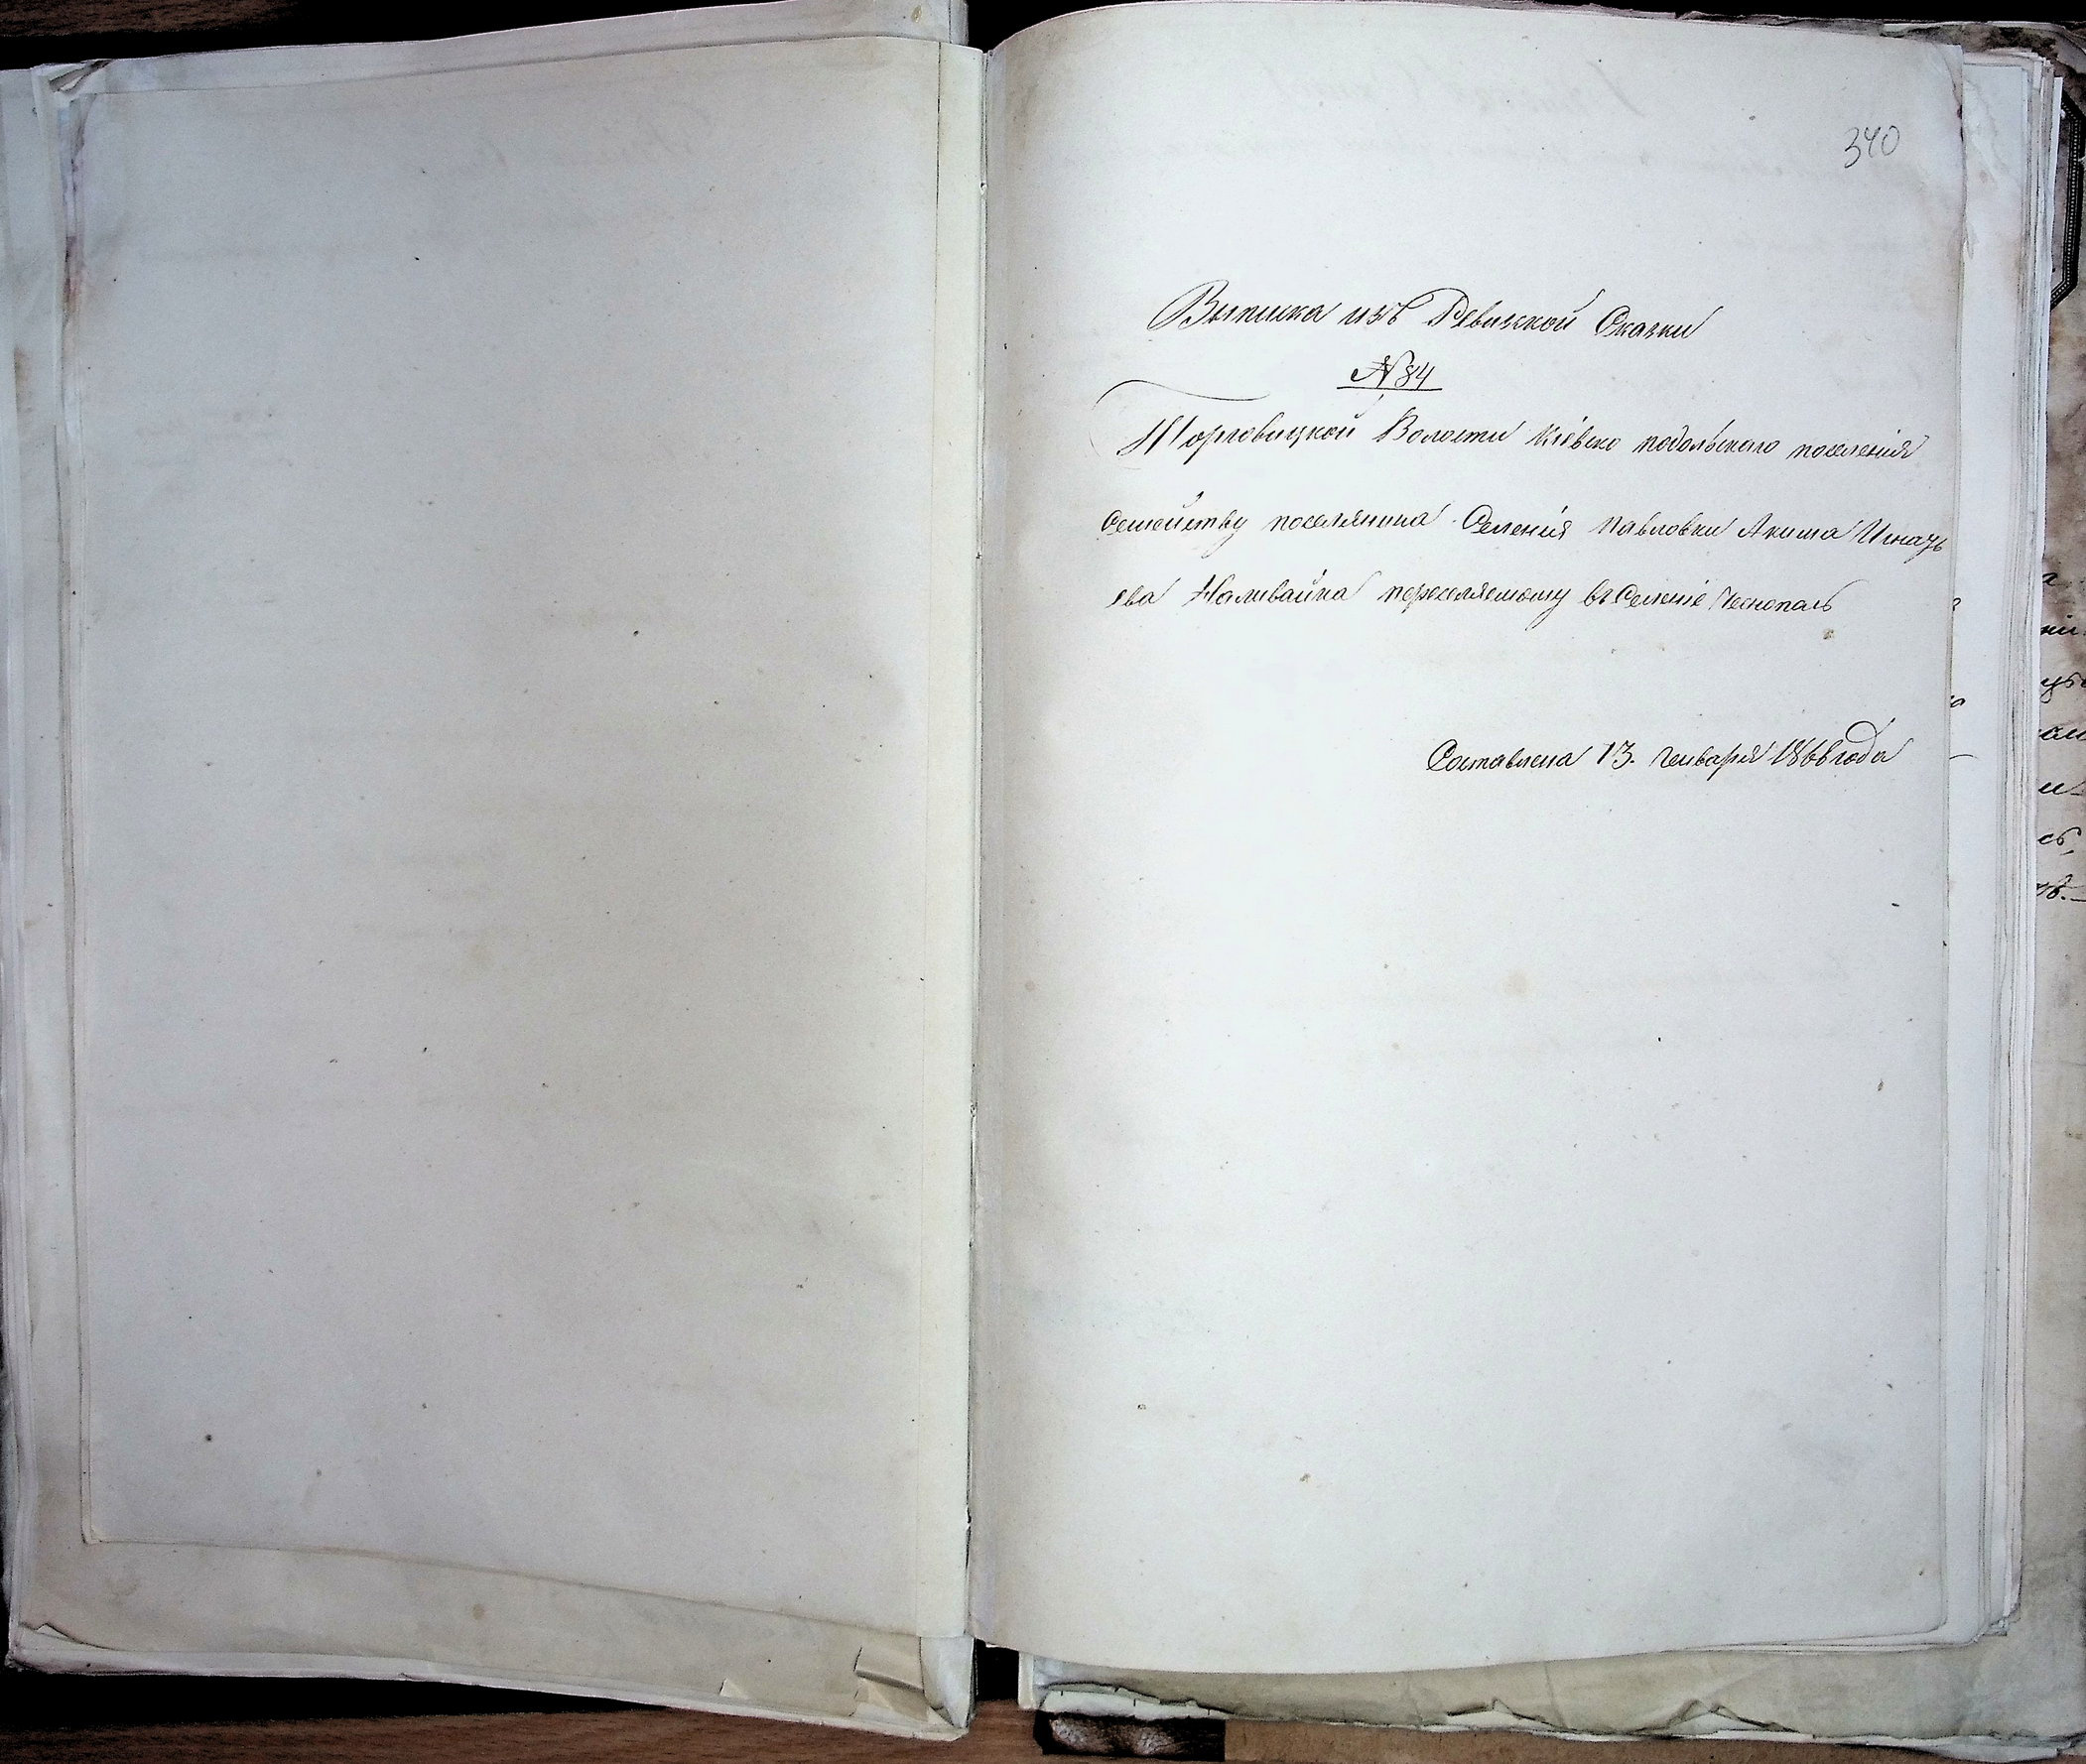 340
Выписка изъ Ревизкой Сказки
№ 84
Торговицкой Волости Кіевско подольскаго поселенія
Семейству поселянина Селенія Павловки Акима Игнать
ева Наливайка переселяемому въ Селеніе
Составлена 13. Генваря 1868 года